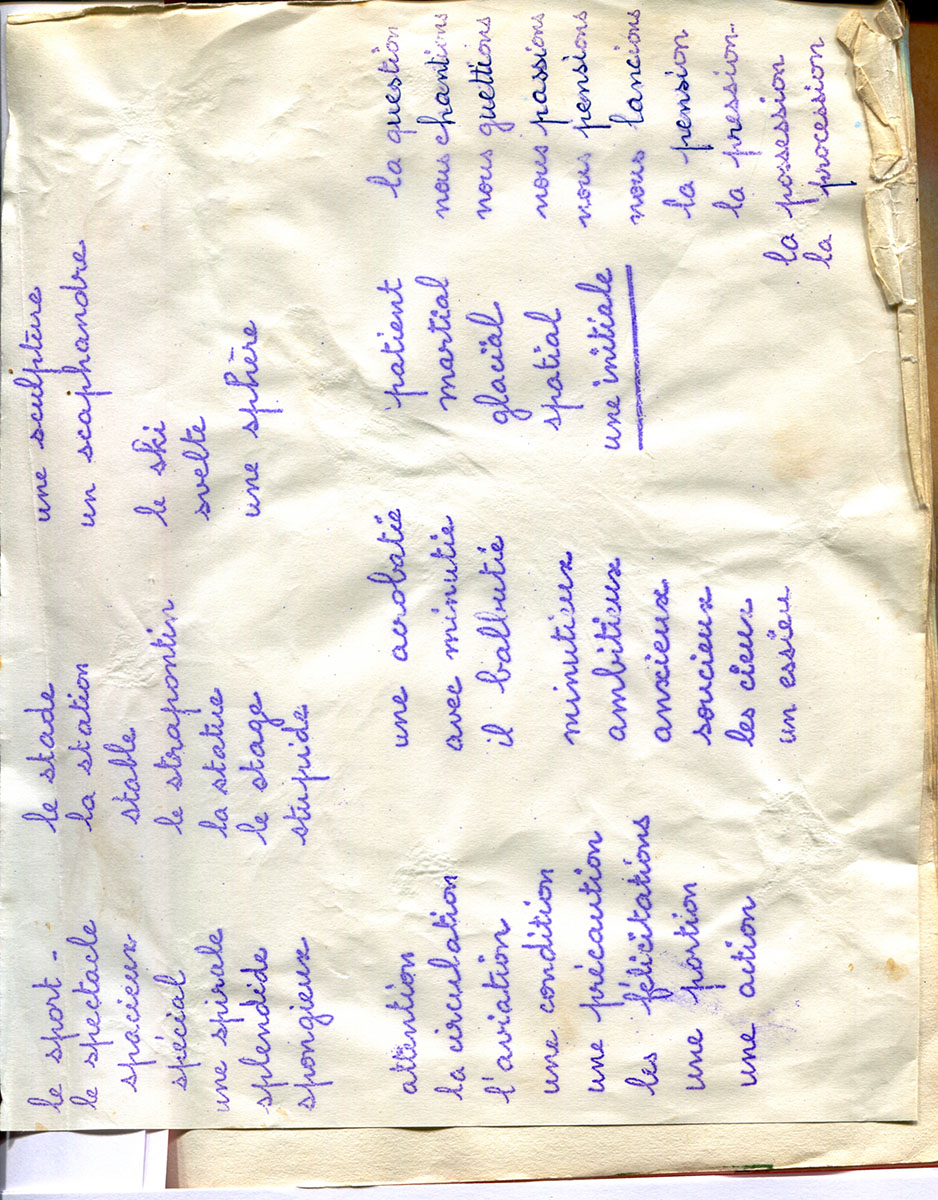 le sport -
le spectacle
spacieux
spécial
une spirale
splendide
spongieux
le stade
la station
stable
le strapontin
la stature
le stage
stupide
une sculpture
un scaphandre
le ski
svelte
une sphère
attention
la circulation
l'aviation
une condition
une précaution
les félicitations
une portion
une action
une acrobatie
avec minutie
il balbutie
minutieux
ambitieux
anxieux
soucieux
les cieux
un essieu
patient
martial
glacial
spatial
une initiale
la question
nous chantions
nous guettions
nous passions
nous pensions
nous lancions
la pension
la pression -
la possession
la procession